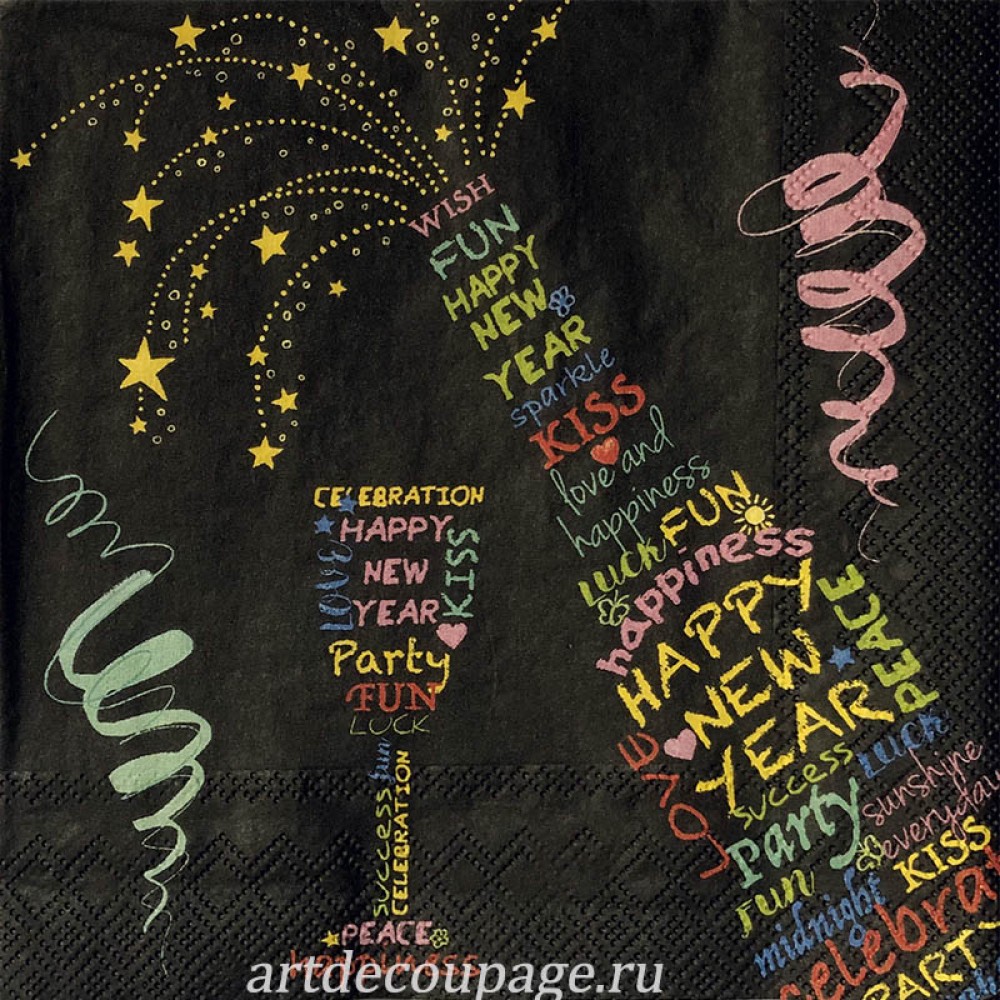 WISH
FUN
HAPPY
NEW
YEAR
sparkle
KISS
love and
happiness
luck FUN
happiness
HAPPY
NEW
YEAR
PEACE
LOVE
success
luck
Party
sunshine
everyday
fun
KISS
midnight
celebrat
PARTY
CELEBRATION
HAPPY
NEW
YEAR
LOVE
KISS
Party
FUN
LUCK
fun
success
CELEBRATION
PEACE
happiness
artdecoupage.ru